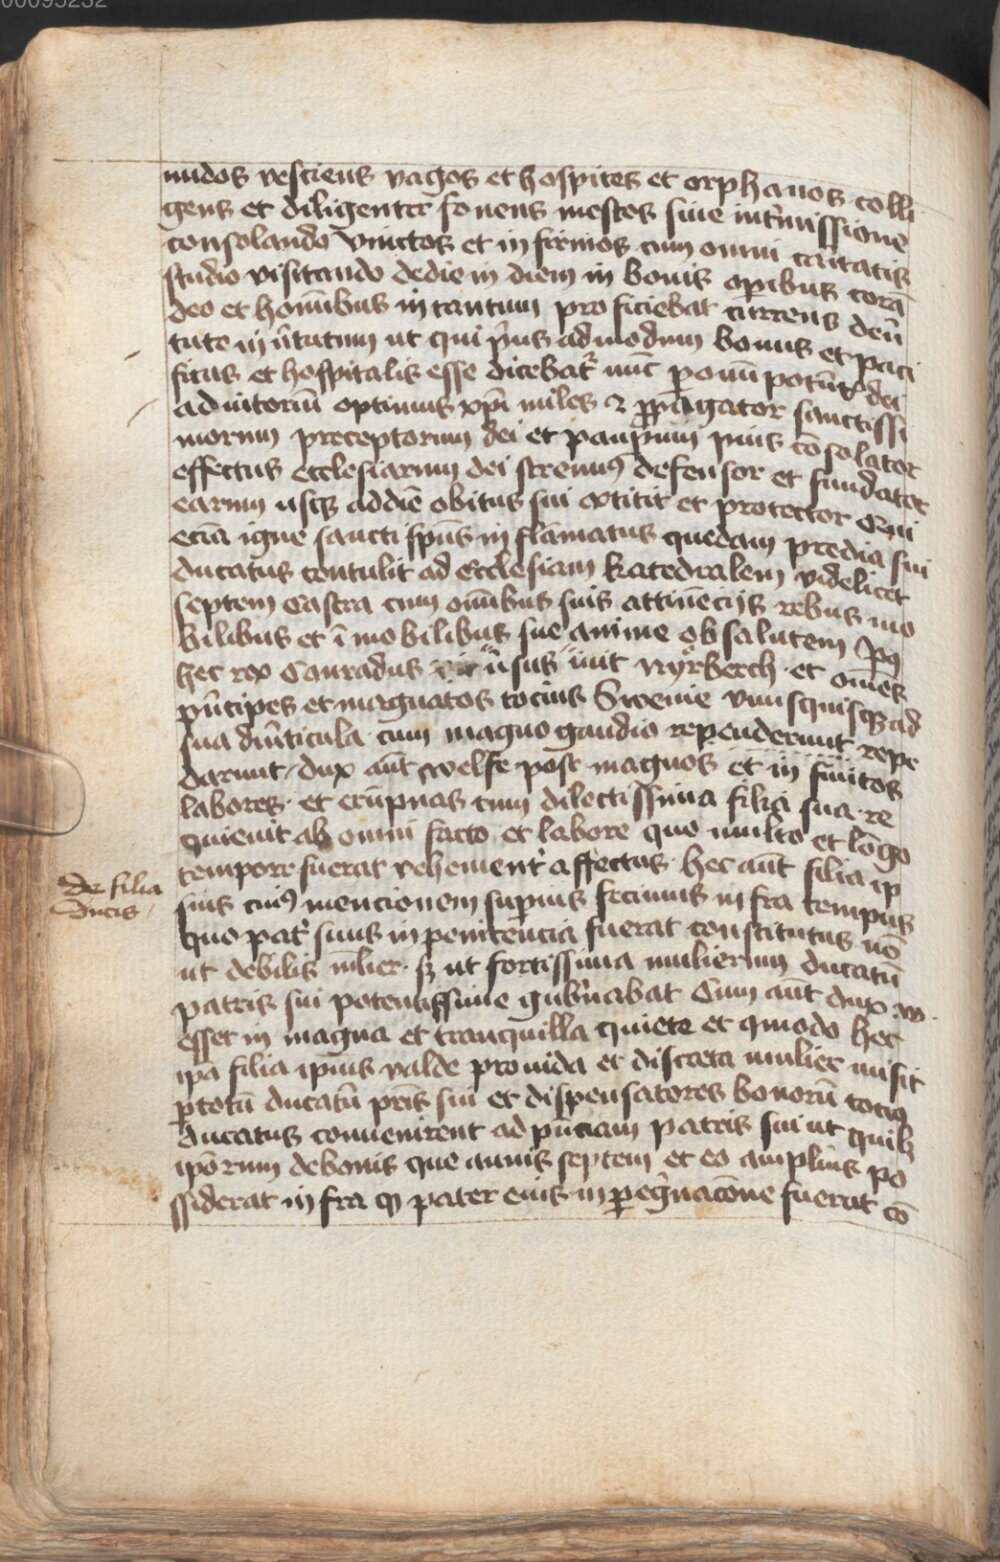 00095232
nudos vestiens vagos et hospites et orphanos colli
gens et diligenter fouens mestos sine int'missione
consolando vinctos et in firmos cum omni caritatis
studio visitando dedie in diem in bonis op̄ibus corā
deo et hom̄ibus in tantum pro ficiebat currens deū
tute in v̄tutum ut qui p̄us admodum bonus et paci
ficus et hospitalis esse dicebat᷑ nūc p
adiutoriū optimus xp̄i miles ⁊ p̄pagator sanctissi
morum preceptorum dei et paup̄um pius cōsolator
effectus ecclesiarum dei strenuꝰ defensor et fundator
earum usqꝫ addiē obitus sui extitit et protector Qui
eciā igne sancti sp̄us in flāmatus quedam predia sui
ducatus contulit ad Ecclesiam katedralem videlicet
septem Castra cum om̄ibus suis attinēcijs rebus mo
bilibus et ī mobilibus sue anime ob salutem Pꝯ
hec rex Conradus v̄sus iuit Nỏrberch et om̄es
p̄ncipes et magnatos tocius Sweuie vnusquisqꝫ ad
sua diu̅ticula cum magno gaudio rependerunt repe
darunt / dux aūt welfe post magnos et in finitos
labores et erūpnas cum dilectissima filia sua re
quieuit ab omni facto et labore quo multo et lōgo
tempore fuerat vehement' affectus hec aūt filia ip
sius cuiꝰ mencionem sup̄ius fecimus in fra tempus
quo pat᷑ suus in penitencia fuerat constitutus nō
ut debilis m̄lier sꝫ ut fortissima mulierum ducatū
patris sui potentissime gub̄nabat Cum aūt dux .w.
esset in magna et tranquilla quiete et qmodo hec
ip̄a filia ip̄ius valde prouida et discreta mulier misit
ꝑ totū ducatū p̄ris sui et dispensatores bonorū tociꝰ
ducatus conuenirent ad p̄nciam patris sui ut quilꝫ
ip̄orum debonis que annis septem et eo amplius po
ssiderat in fra qꝫ pater eius in peg̅nacōne fuerat cō
de filia
ducis